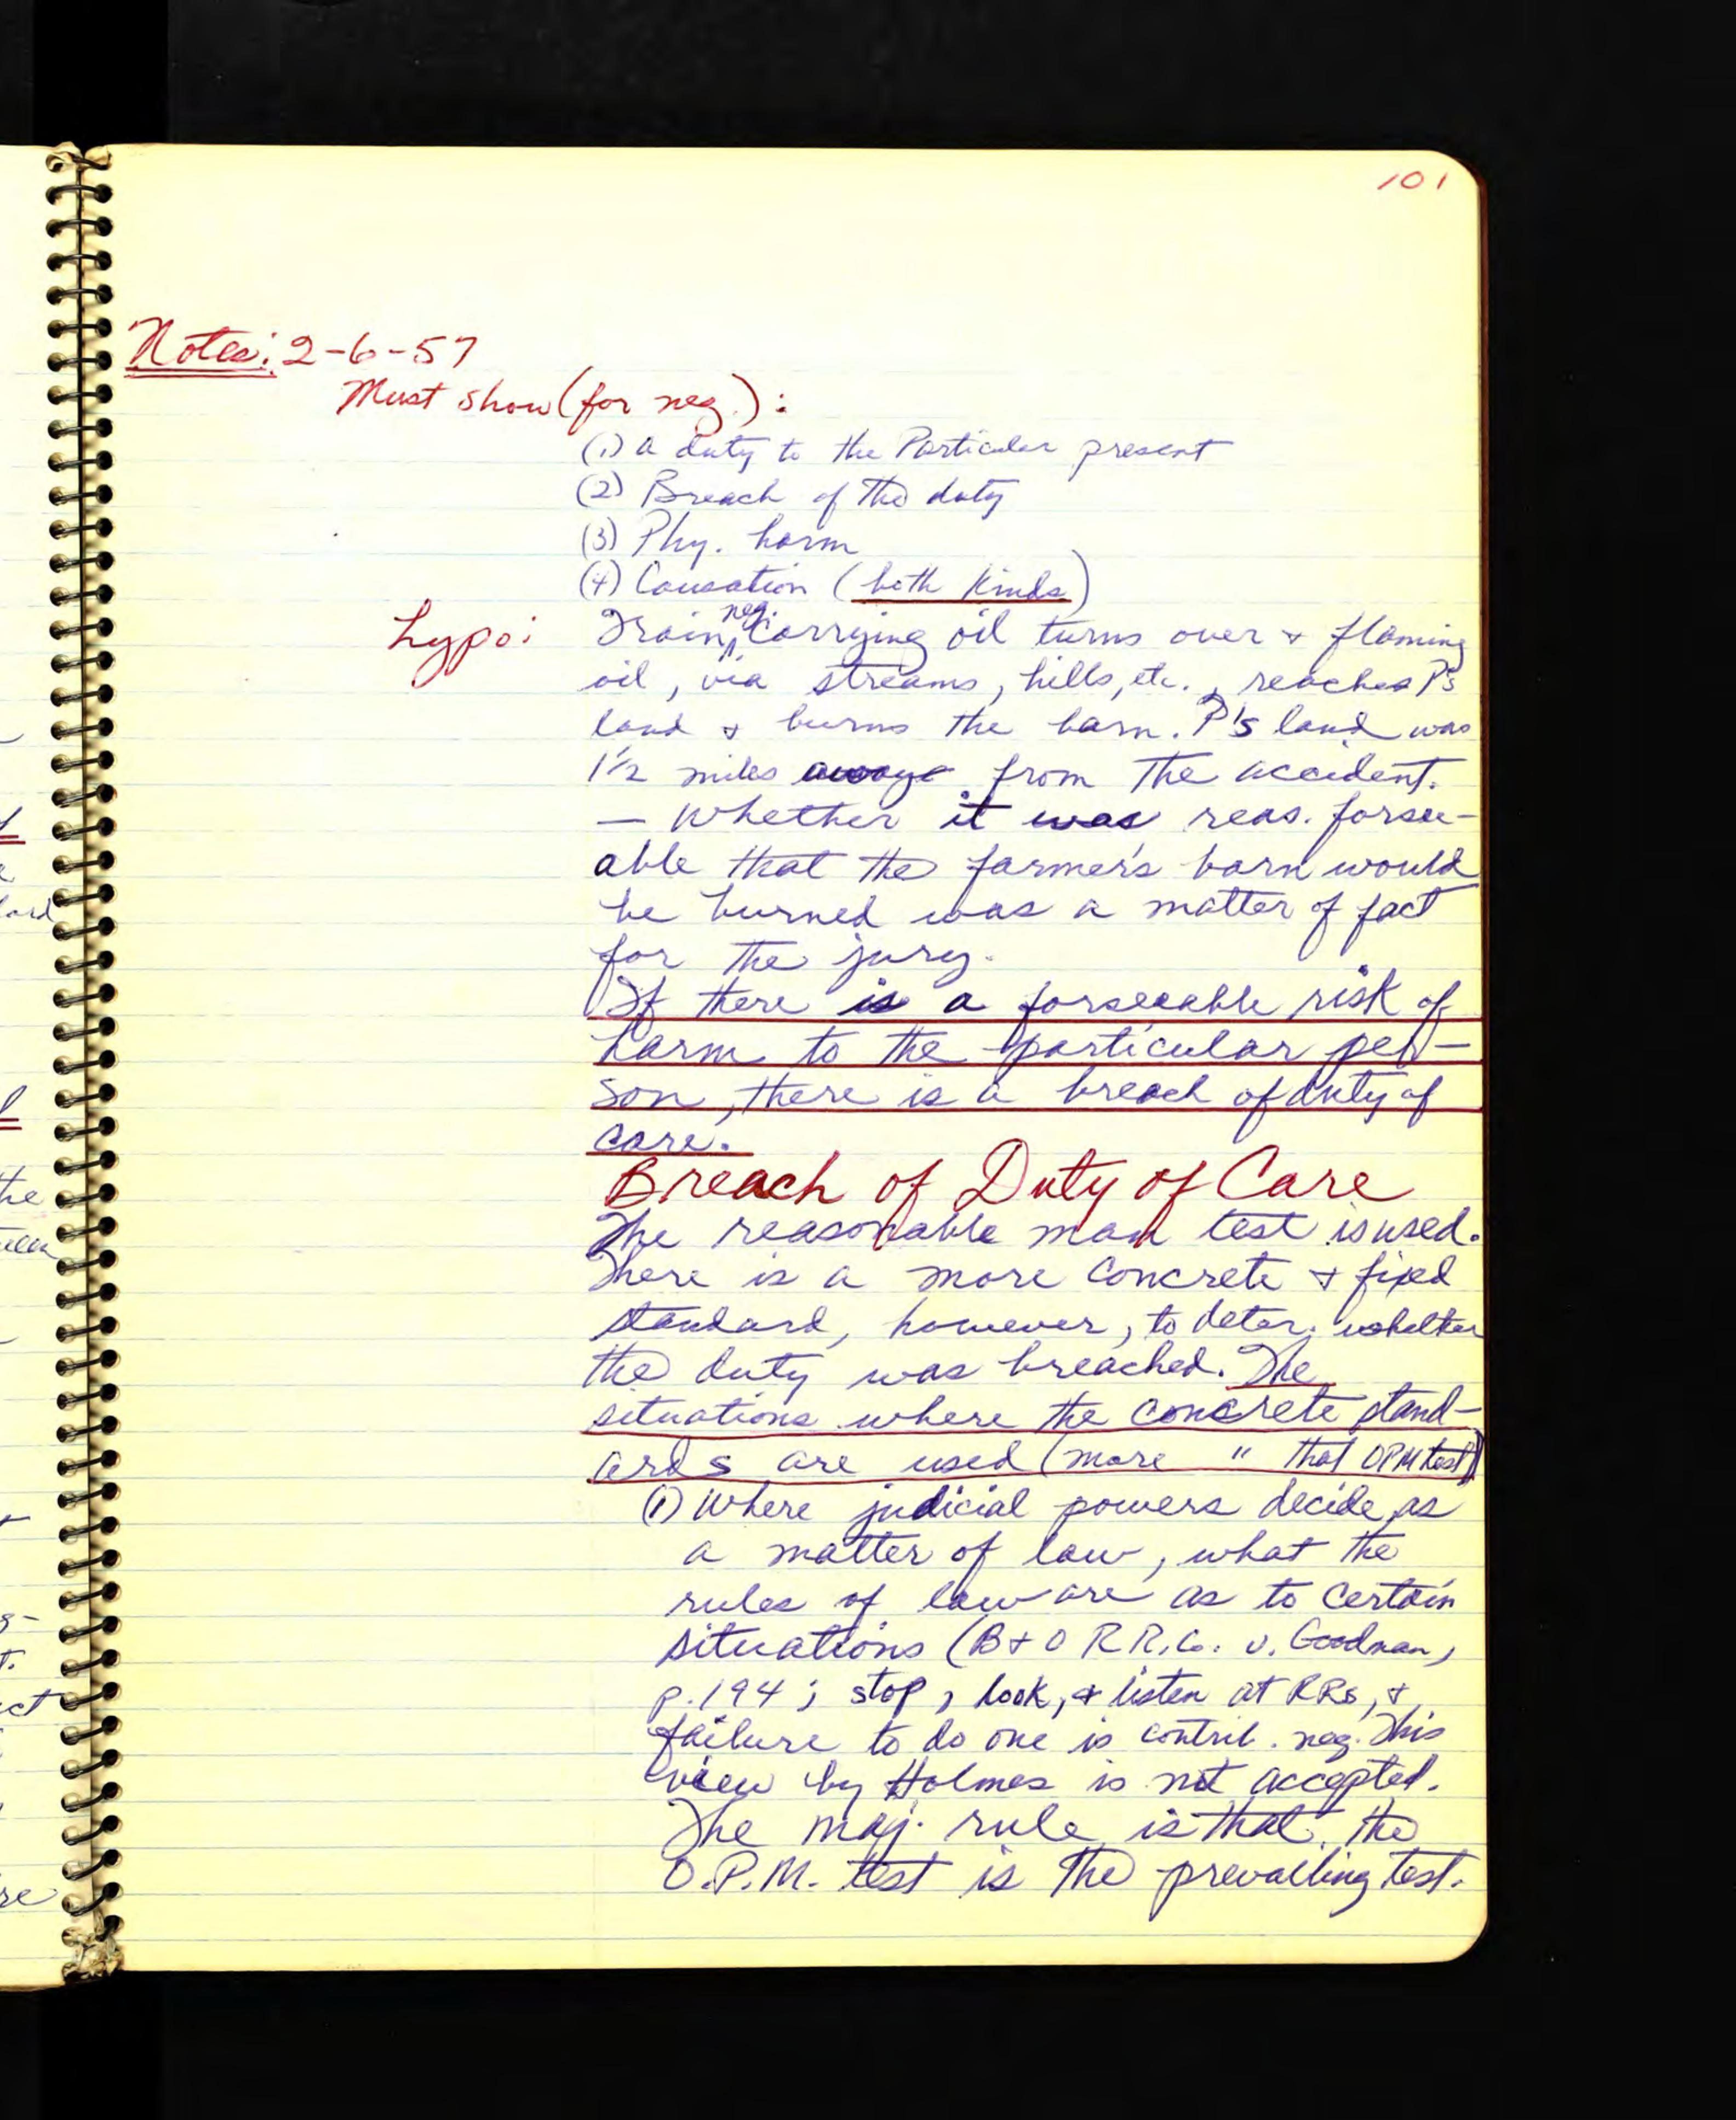 101
Notes: 2-6-57
Must show (for neg.):
(1) a duty to the Particular present
(2) Breach of the duty
(3) Phy. harm
(4) Causation (both kinds)
hypo: Train, neg. carrying oil turns over & flaming
oil, via streams, hills, etc., reaches P's
land & burns the barn. P's land was
1½ miles from the accident.
— Whether it was reas. forsee-
able that the farmer's barn would
be burned was a matter of fact
for the jury.
If there is a forseeable risk of
harm to the particular per-
son, there is a breach of duty of
care.
Breach of Duty of Care
The reasonable man test is used.
There is a more concrete & fixed
standard, however, to deter. whether
the duty was breached. The
situations where the concrete stand-
ards are used (more " that OPM test)
(1) Where judicial powers decide, as
a matter of law, what the
rules of law are as to certain
situations (B & O R R. Co. v. Goodman,
p. 194; stop, look, & listen at RRs, &
failure to do one is contrib. neg. This
view by Holmes is not accepted.
The maj. rule is that the
O.P.M. test is the prevailing test.
the
ct
re